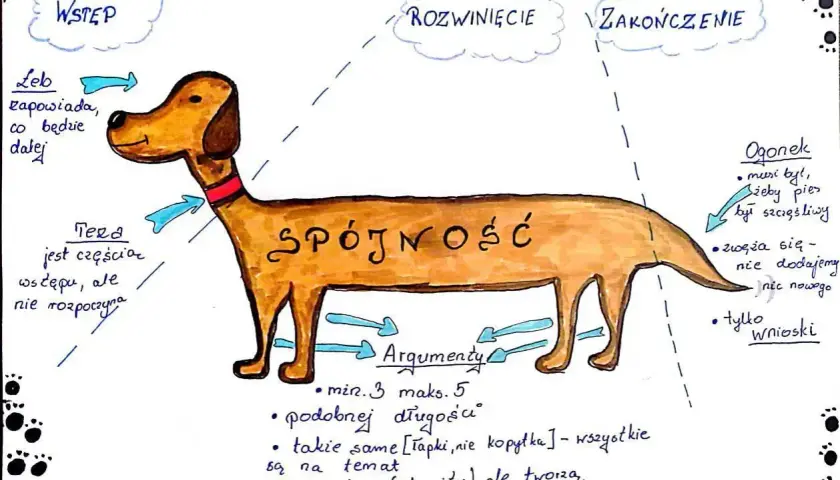 WSTĘP
ROZWINIĘCIE
ZAKOŃCZENIE
Łeb
zapowiada,
co będzie
dalej
Teza
jest częścią
wstępu, ale
nie rozpoczyna
SPÓJNOŚĆ
Argumenty
• min. 3 maks. 5
• podobnej długości
• takie same [łapki, nie kopytka] - wszystkie
są na temat
ale tworzą
Ogonek
• musi być,
żeby pies
był szczęśliwy
• zwęża się -
nie dodajemy
nic nowego
• tylko
WNIOSKI